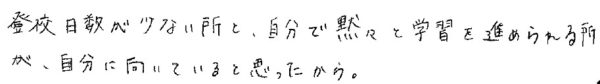 登校日数が少ない所と、自分で黙々と学習を進められる所
が、自分に向いていると思ったから。